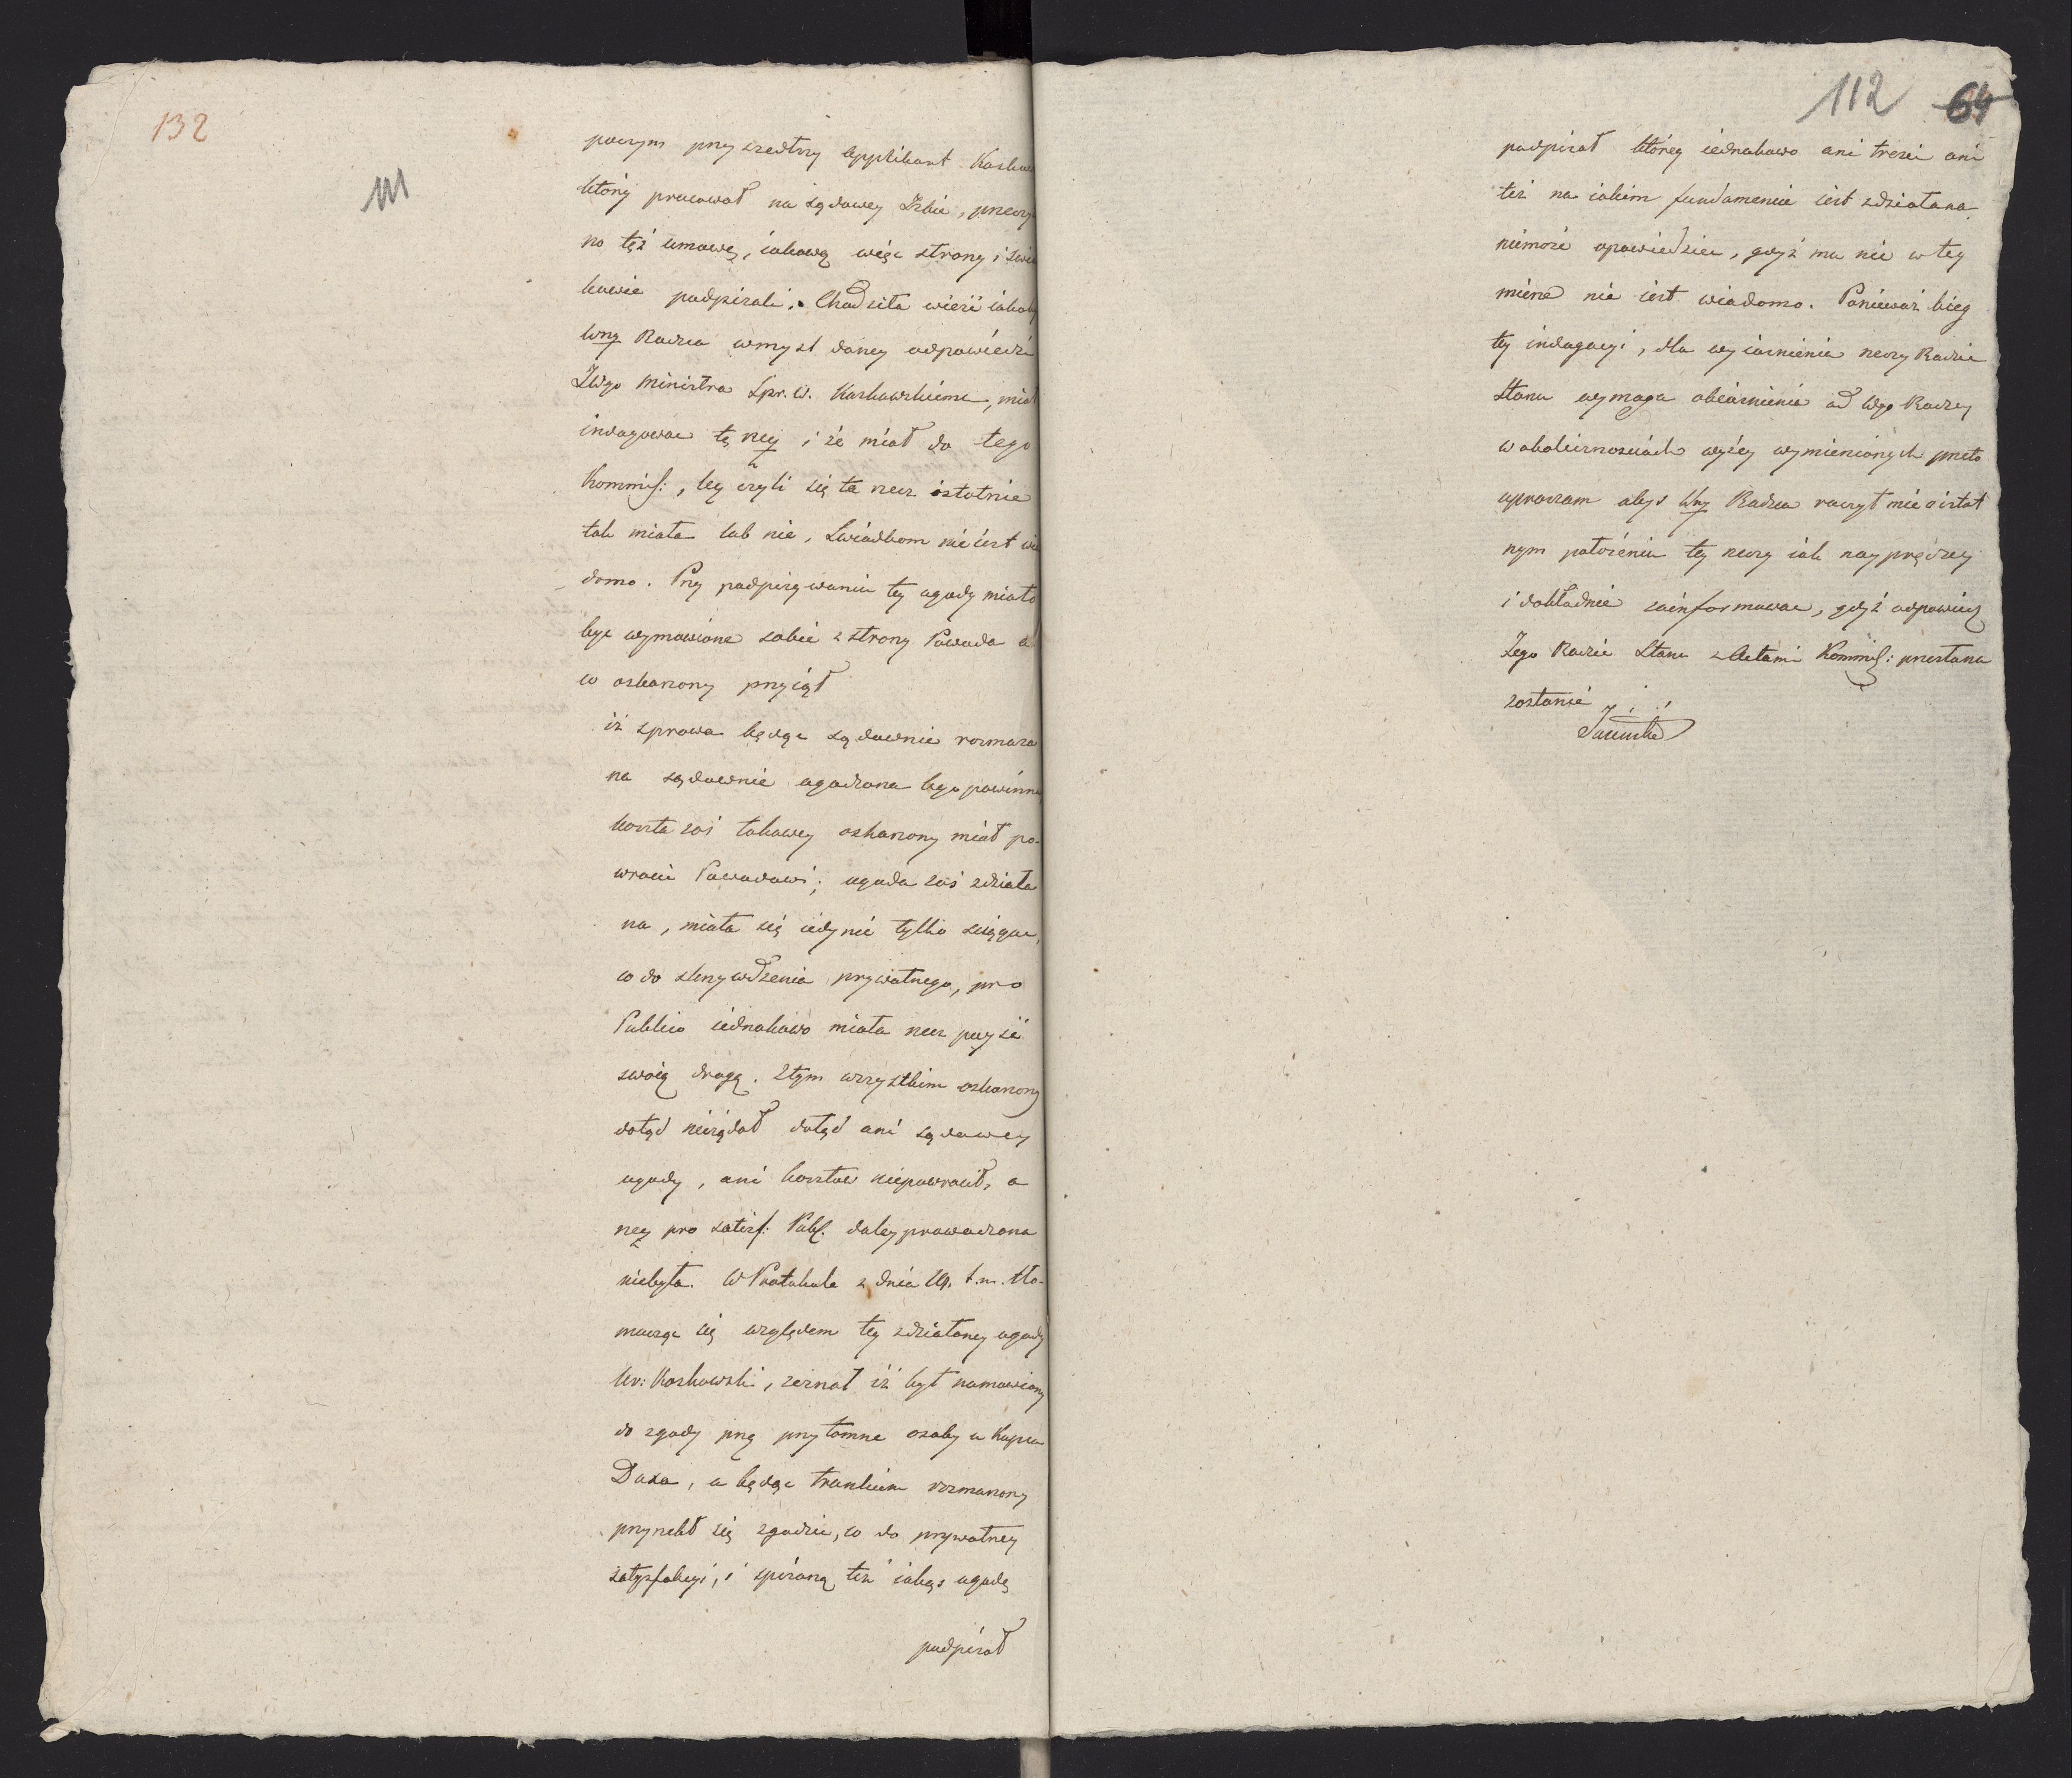 132
111
poczym przyszedłszy Applikant Koskow
który pracował na sądowey Izbie, przeczy
no tęż umowę, iakową więc strony i świa
kowie podpisali. Chodziła wieść iakoby
Wny Radca wmyśl daney odpowiedzi
JWgo Ministra Spr. W. Koskowskiemu, miał
indagować tę rzecz i że miał do tego
Kommiss:, lecz czyli się ta rzecz istotnie
tak miała lub nie, Świadkom nie iest wia
domo. Przy podpisywaniu tey ugody miało
być wymówione sobie z strony Powoda a
co oskarzony przyiął
iż sprawa będąc sądownie rozmaza
na sądownie ugodzona być powinna
koszta zaś takowey oskarzony miał po-
wrócić Powodowi; ugoda zaś zdziała
na, miała się iedynie tylko ściągać,
co do skrzywdzenia prywatnego, pro
Publico iednakowo miała rzecz póyść
swoią drogą. Ztym wszystkim oskarzony
dotąd nieżądał dotąd ani sądowey
ugody, ani kosztow niepowrócił, a
rzecz pro satisf: Publ. daley prowadzona
niebyła. W Protokule z dnia 19. t. m. tło-
macząc się względem tey zdziałaney ugody
Ur: Koskowski, zeznał iż był namowiony
do zgody przez przytomne osoby u Kupca
Daxa, a będąc trunkiem rozmarzony
przyrzekł się zgodzić, co do prywatney
satysfakcyi, i spisaną też iakąś ugodę
podpisał
112 64
podpisał którey iednakowo ani treści ani
też na iakim fundamencie iest zdziałana
niemoże opowiedzieć, gdyż mu nic w tey
mierze nie iest wiadomo. Ponieważ bieg
tey indagacyi, dla wyiaśnienia rzeczy Radzie
Stanu wymaga obiaśnienia od Wgo Radcy
w okolicznościach wyżey wymienionych przeto
upraszam abyś Wny Radca raczył mie o istot
nym położeniu tey rzeczy iak nayprędzey
i dokładnie zainformować, gdyż odpowiedź
Jego Radzie Stanu z Aktami Kommiss: przesłana
zostanie